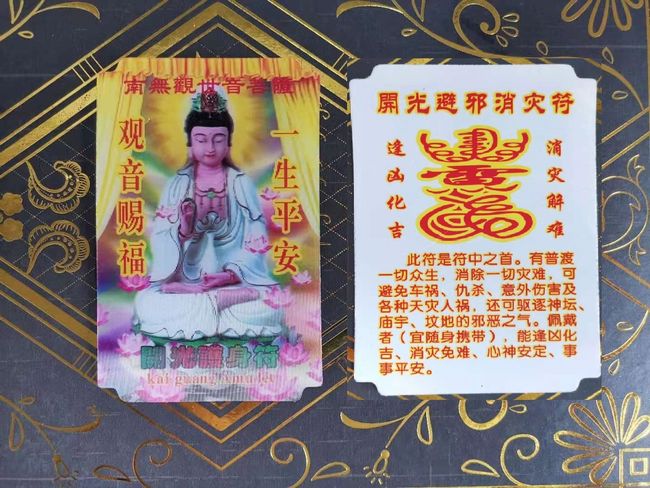 南無觀世音菩薩
观音赐福
一生平安
開光護身符
kai guang Amulet
開光避邪消灾符
逢凶化吉
消灾解难
此符是符中之首。有普渡
一切众生，消除一切灾难，可
避免车祸、仇杀、意外伤害及
各种天灾人祸，还可驱逐神坛、
庙宇、坟地的邪恶之气。佩戴
者（宜随身携带），能逢凶化
吉、消灾免难、心神安定、事
事平安。